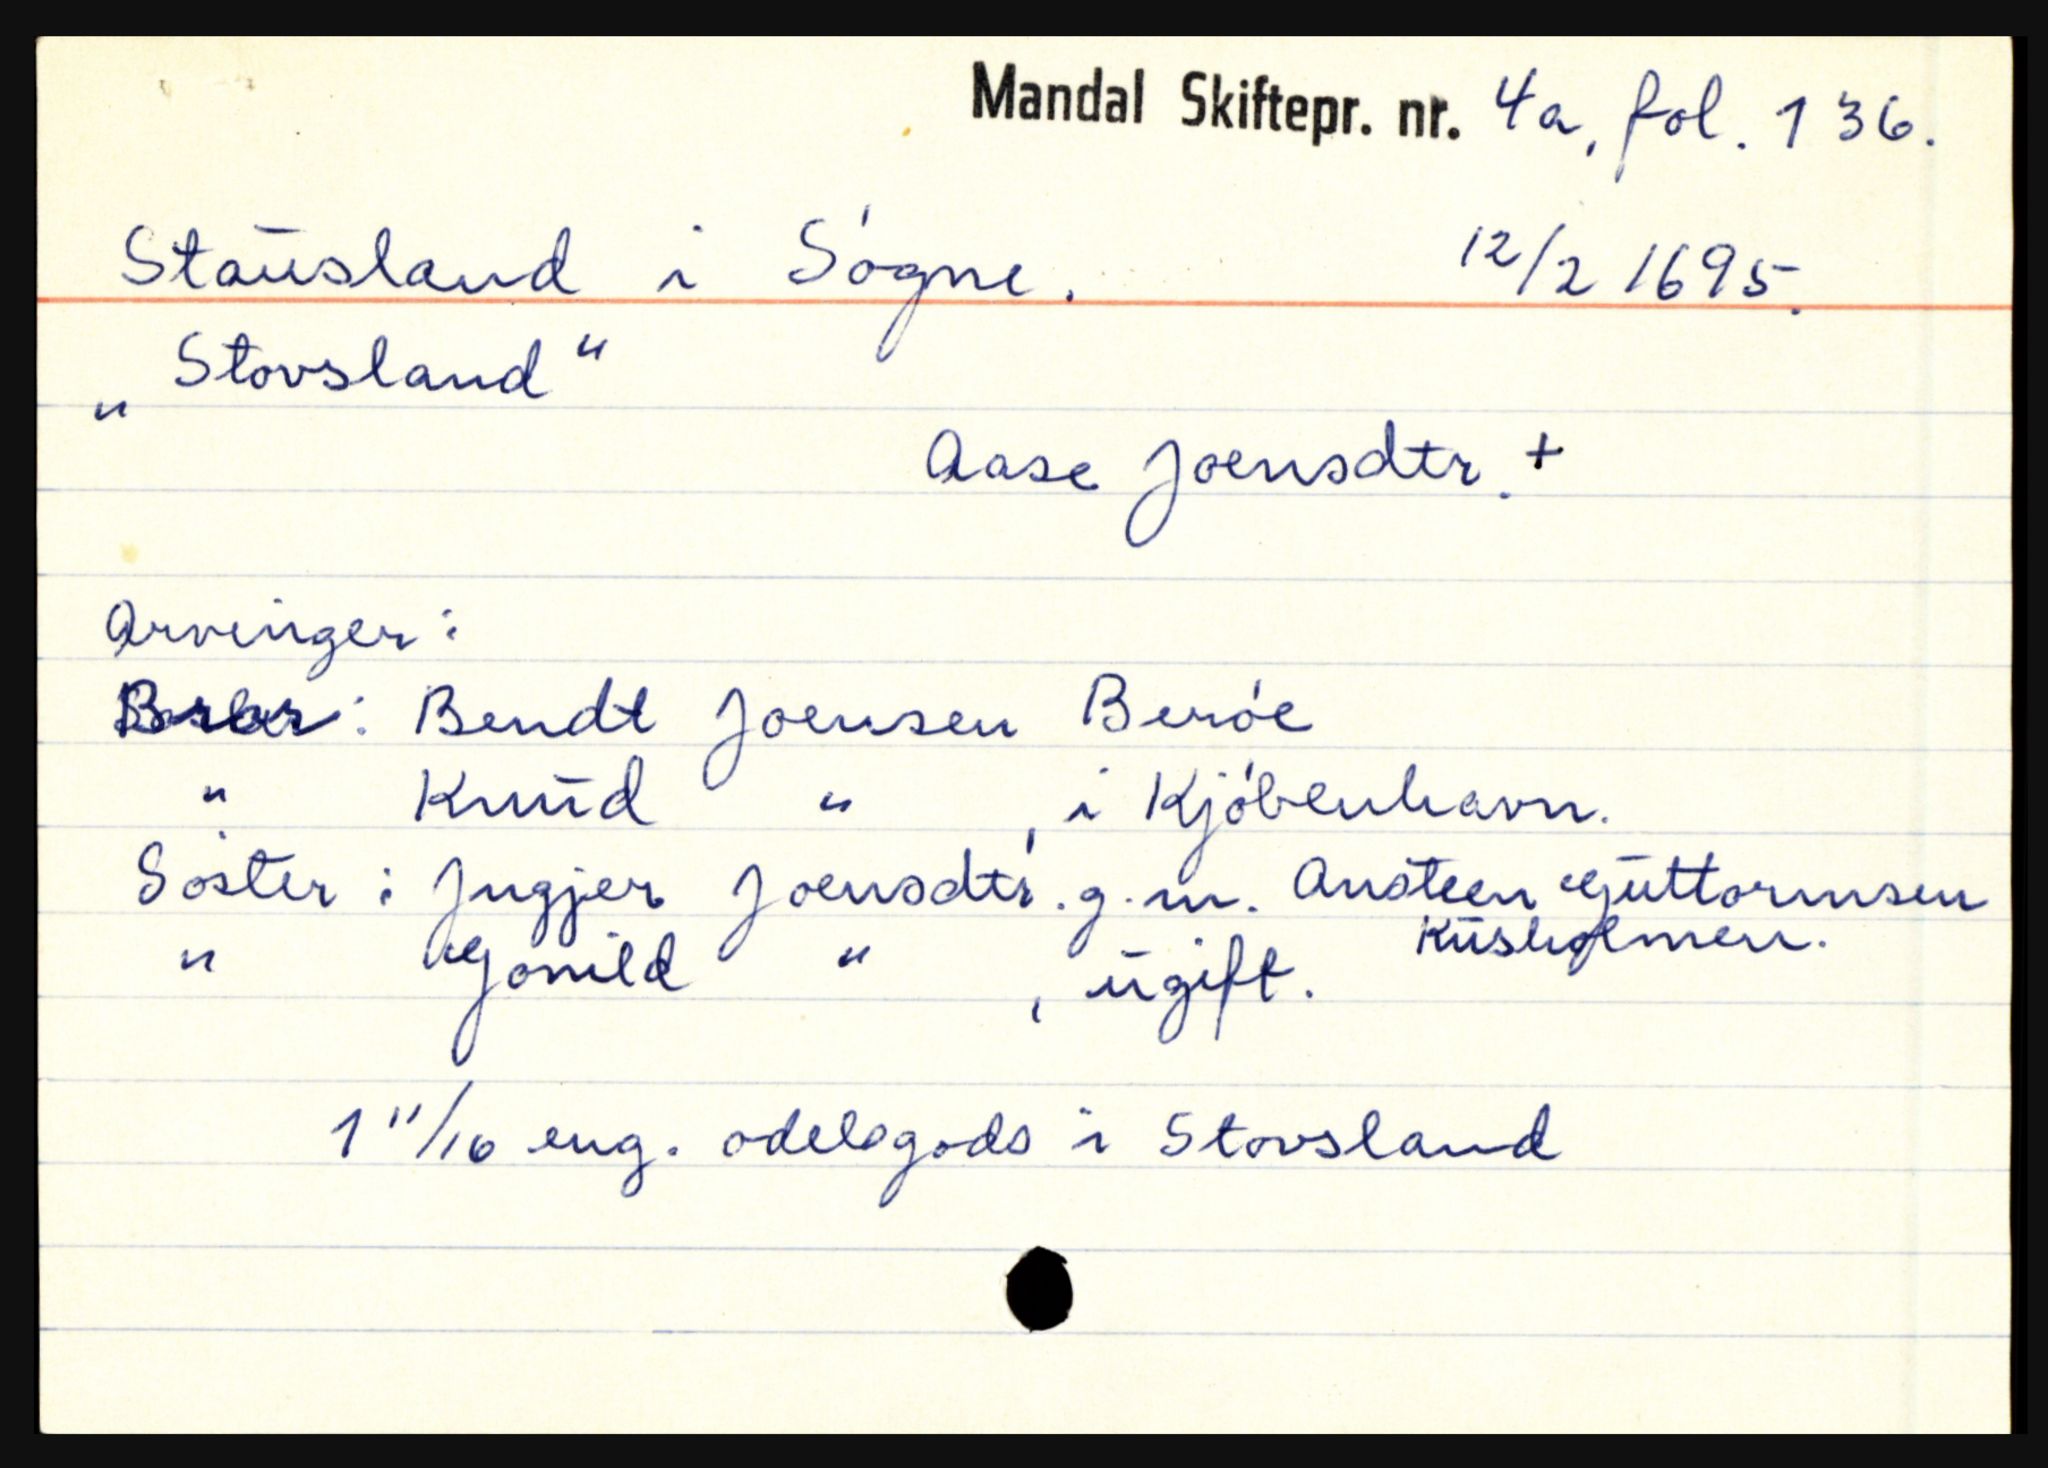 Mandal Skiftepr. nr. 4a, fol. 136.
Stausland i Søgne. 12/2 1695.
„Stovsland“
Aase Joensdtr. +
Arvinger:
Bror: Bendt Joensen Berøe
" Knud " , i Kjøbenhavn.
Søster: Ingjer Joensdtr. g.m. Ansteen Guttormsen
Kusholmen.
" Gonild " , ugift.
1 11/16 eng. odelsgods i Stovsland